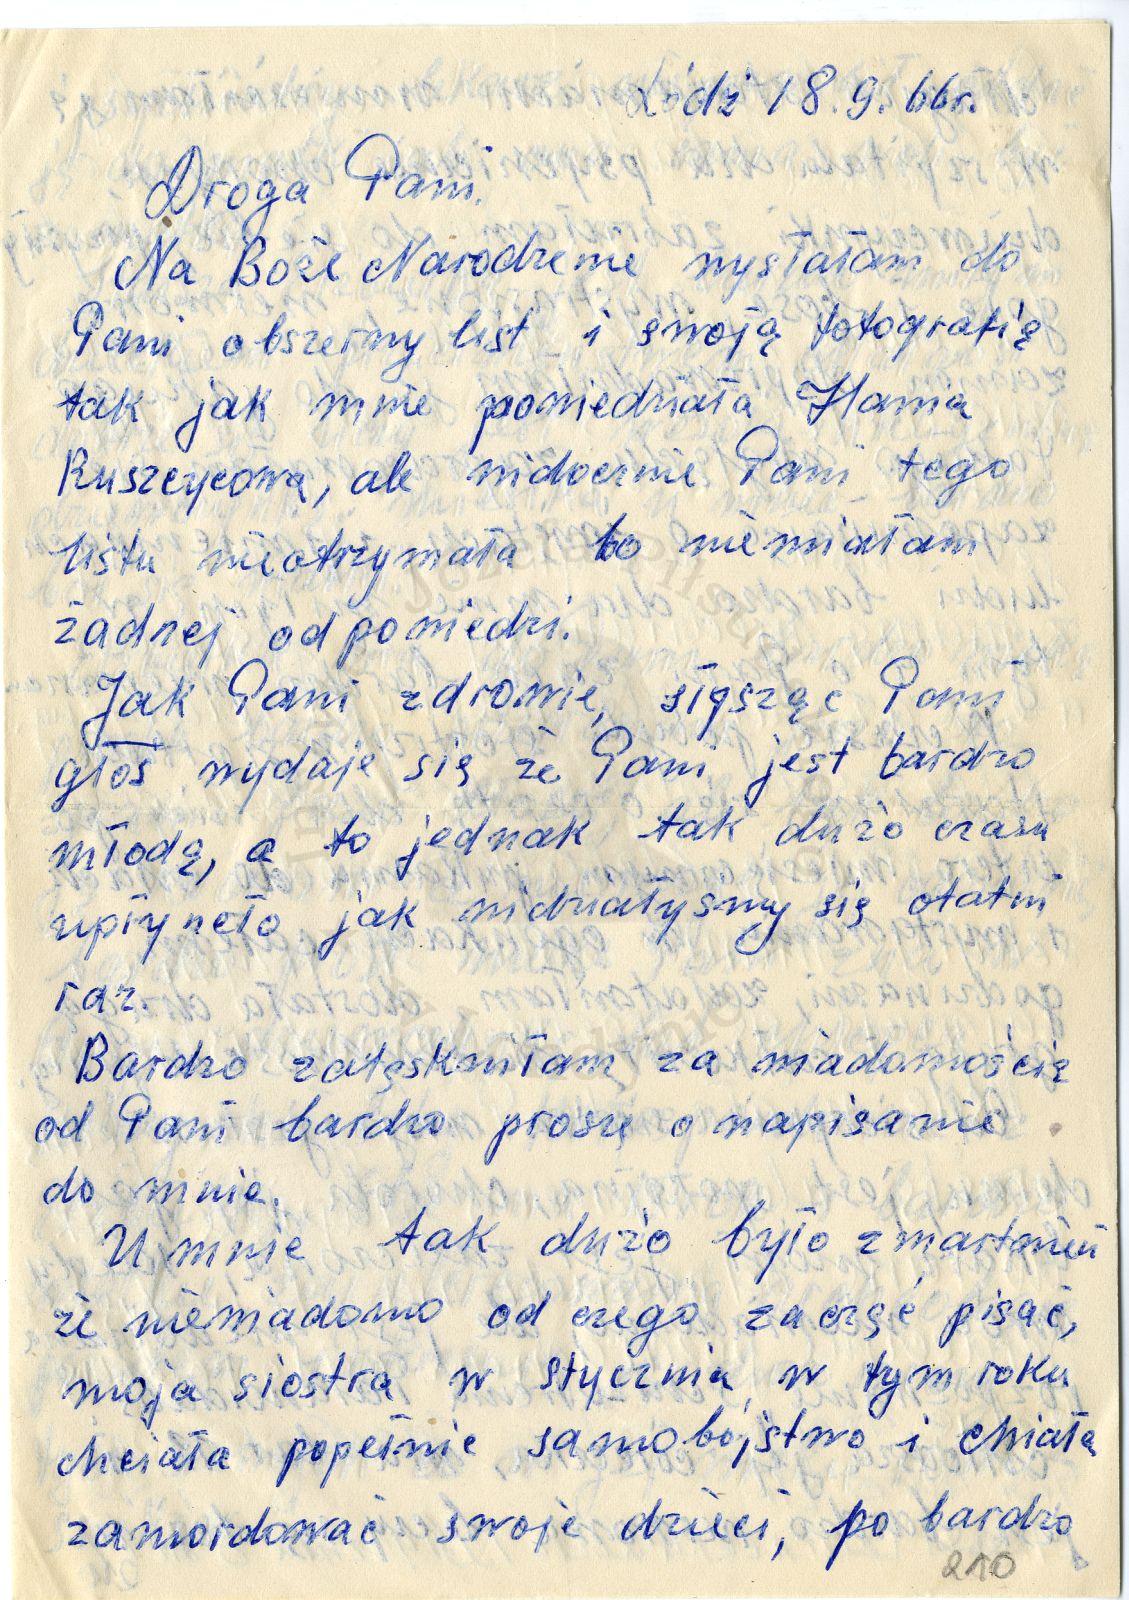 Łódź 18.9.66r.
Droga Pani.
Na Boże Narodzenie wysłałam do
Pani obszerny list i swoją fotografią
tak jak mnie powiedziała Hania
Ruszcycową, ale widocznie Pani tego
listu nieotrzymała bo niemiałam
żadnej odpowiedzi.
Jak Pani zdrowie, słysząc Pani
głos wydaje się że Pani jest bardzo
młodą, a to jednak tak dużo czasu
upłyneło jak widziałysmy się otatni
raz.
Bardzo zatęskniłam za wiadomością
od Pani bardzo proszę o napisanie
do mnie.
U mnie tak dużo było zmartwień
że niewiadomo od czego zacząć pisać,
moja siostra w styczniu w tym roku
chciała popełnić samobójstwo i chiała
zamordować swoje dzieci, po bardzo
210